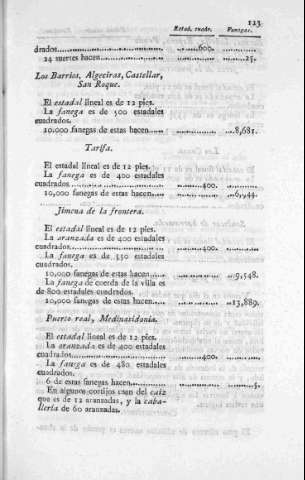 123
Estad. cuadr. Fanegas.
drados.............................. ........600. ............
24 suertes hacen.................... ............ ......25.
Los Barrios, Algeciras, Castellar,
San Roque.
El estadal lineal es de 12 pies.
La fanega es de 500 estadales
cuadrados.
10.000 fanegas de estas hacen...... ............ ...8,681.
Tarifa.
El estadal lineal es de 12 pies.
La fanega es de 400 estadales
cuadrados........................... .........400. ............
10,000 fanegas de estas hacen..... ............ ...6,944.
Jimena de la frontera.
El estadal lineal es de 12 pies.
La aranzada es de 400 estadales
cuadrados........................... .........400. ............
La fanega es de 550 estadales
cuadrados.
10,000 fanegas de estas hacen..... ............ ...9,548.
La fanega de cuerda de la villa es
de 800 estadales cuadrados.
10,000 fanegas de estas hacen..... ............ ...13,889.
Puerto real, Medinasidonia.
El estadal lineal es de 12 pies.
La aranzada es de 400 estadales
cuadrados........................... .........400. ............
La fanega es de 480 estadales
cuadrados.
6 de estas fanegas hacen........... ............ .........5.
En algunos cortijos usan del caiz
que es de 12 aranzadas, y la caba-
llería de 60 aranzadas.